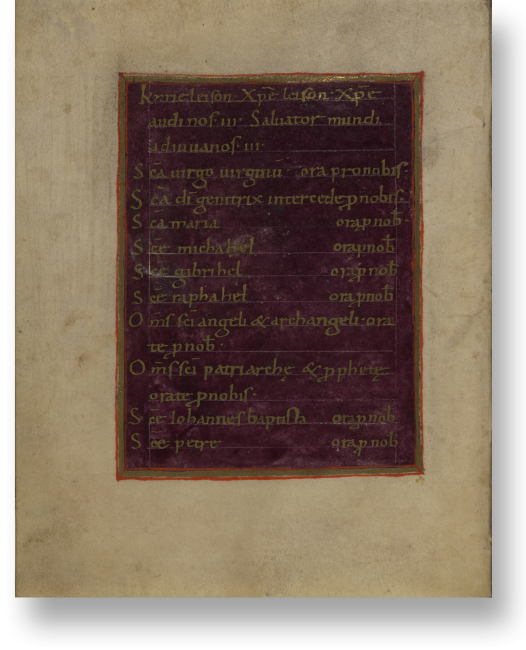 Kyrieleison · Xp̄e leison · Xp̄e
audi nos · iii · Saluator mundi
adiuua nos · iii ·
Sc̄a uirgo uirginū ora pro nobis ·
Sc̄a dī genitrix intercede ꝓ nobis ·
Sc̄a maria ora ꝓ nob̄
Sc̄e michahel ora ꝓ nob̄
Sc̄e gabrihel ora ꝓ nob̄
Sc̄e raphahel ora ꝓ nob̄
Om̄s sc̄i angeli & archangeli · ora
te ꝓ nob̄ ·
Om̄s sc̄i patriarchę & ꝓphetę
orate ꝓ nobis ·
Sc̄e Iohannes baptista ora ꝓ nob̄
Sc̄e petre ora ꝓ nob̄